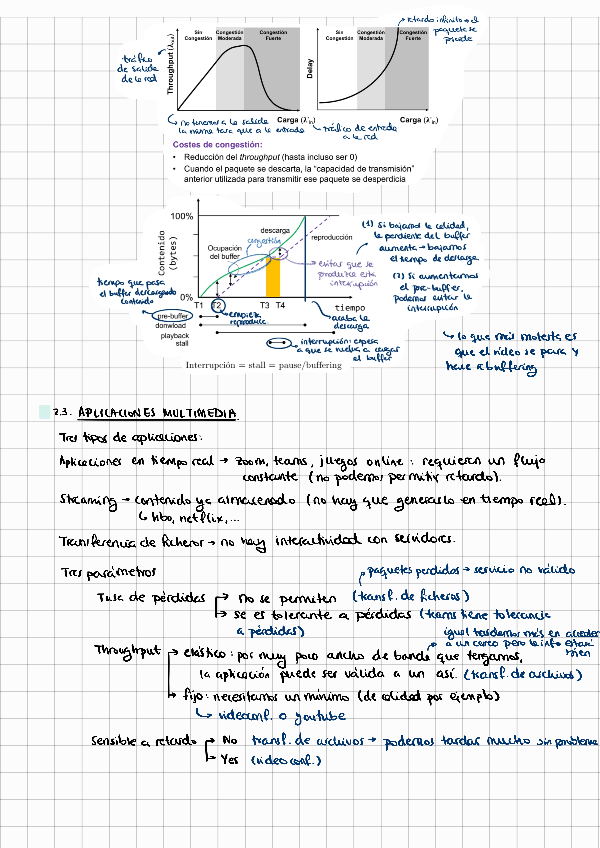 retardo infinito → el
paquete se
pierde
Sin
Congestión
Congestión
Moderada
Congestión
Fuerte
Sin
Congestión
Congestión
Moderada
Congestión
Fuerte
tráfico
de salida
de la red
Throughput (λout)
Delay
Carga (λ'in)
Carga (λ'in)
no tenemos a la salida
la misma tasa que a la entrada
tráfico de entrada
a la red
Costes de congestión:
• Reducción del throughput (hasta incluso ser 0)
• Cuando el paquete se descarta, la "capacidad de transmisión"
anterior utilizada para transmitir ese paquete se desperdicia
100%
Contenido
(bytes)
0%
descarga
congestión
Ocupación
del buffer
reproducción
evitar que se
produzca esta
interrupción
(1) Si bajamos la calidad,
la pendiente del buffer
aumenta → bajamos
el tiempo de descarga.
(2) Si aumentamos
el pre-buffer,
podemos evitar la
interrupción
tiempo que pasa
el buffer descargando
contenido
T1 T2 T3 T4 tiempo
pre-buffer
donwload
playback
stall
empieza
reproducc.
acaba la
descarga
interrupción: espera
a que se vuelva a cargar
el buffer
Interrupción = stall = pause/buffering
lo que más molesta es
que el vídeo se para y
hace rebuffering
2.3. APLICACIONES MULTIMEDIA
Tres tipos de aplicaciones:
Aplicaciones en tiempo real → zoom, teams, juegos online: requieren un flujo
constante (no podemos permitir retardo).
Streaming → contenido ya almacenado (no hay que generarlo en tiempo real).
↳ hbo, netflix,...
Transferencia de ficheros → no hay interactividad con servidores.
Tres parámetros
paquetes perdidos → servicio no válido
Tasa de pérdidas → no se permiten (transf. de ficheros)
→ se es tolerante a pérdidas (teams tiene tolerancia
a pérdidas)
igual tardamos más en acceder
a un correo pero la info estará
bien
Throughput → elástico: por muy poco ancho de banda que tengamos,
la aplicación puede ser válida a un así. (transf. de archivos)
→ fijo: necesitamos un mínimo (de calidad por ejemplo)
↳ videoconf. o youtube
Sensible a retardo → No transf. de archivos → podemos tardar mucho sin problema
→ Yes (videoconf.)